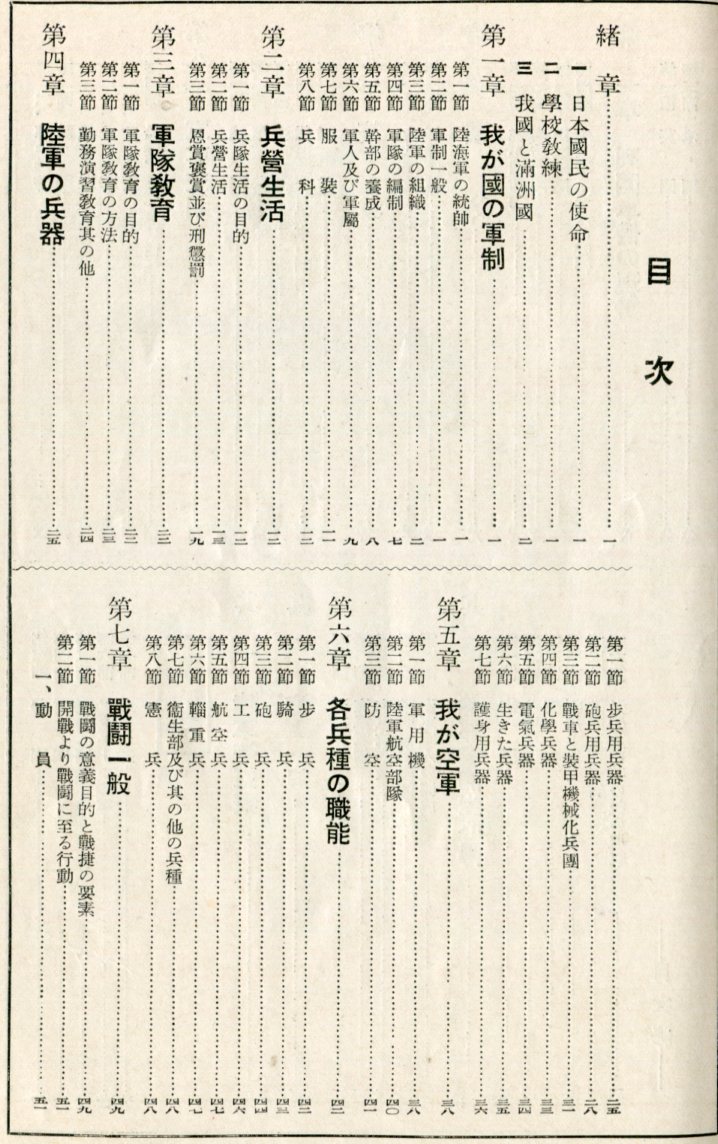 目次
緒章…………一
一 日本國民の使命…………一
二 學校教練…………一
三 我國と滿洲國…………二
第一章 我が國の軍制…………一
第一節 陸海軍の統帥…………一
第二節 軍制一般…………一
第三節 陸軍の組織…………二
第四節 軍隊の編制…………七
第五節 幹部の養成…………八
第六節 軍人及び軍屬…………九
第七節 服裝…………一一
第八節 兵科…………一三
第二章 兵營生活…………一三
第一節 兵隊生活の目的…………一三
第二節 兵營生活…………一三
第三節 恩賞褒賞並び刑懲罰…………一九
第三章 軍隊教育…………二三
第一節 軍隊教育の目的…………二三
第二節 軍隊教育の方法…………二三
第三節 勤務演習教育其の他…………二四
第四章 陸軍の兵器…………二五
第一節 步兵用兵器…………二五
第二節 砲兵用兵器…………二八
第三節 戰車と裝甲機械化兵團…………三一
第四節 化學兵器…………三三
第五節 電氣兵器…………三四
第六節 生きた兵器…………三五
第七節 護身用兵器…………三六
第五章 我が空軍…………三八
第一節 軍用機…………三八
第二節 陸軍航空部隊…………四〇
第三節 防空…………四一
第六章 各兵種の職能…………四二
第一節 步兵…………四二
第二節 騎兵…………四三
第三節 砲兵…………四四
第四節 工兵…………四六
第五節 航空兵…………四七
第六節 輜重兵…………四七
第七節 衞生部及び其の他の兵種…………四八
第八節 憲兵…………四八
第七章 戰鬪一般…………四九
第一節 戰鬪の意義目的と戰捷の要素…………四九
第二節 開戰より戰鬪に至る行動…………五一
一、動員…………五一